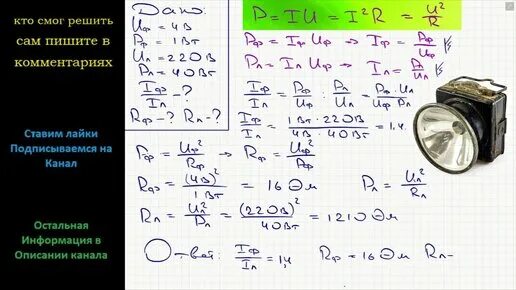 кто смог решить
сам пишите в
комментариях
Ставим лайки
Подписываемся на
Канал
Остальная
Информация в
Описании канала
Дано:
Uφ = 4В
Pφ = 1Вт
Uл = 220В
Pл = 40Вт
Iφ/Iл - ?
Rφ - ? Rл - ?
P = IU = I²R = U²/R
Pφ = Iφ Uφ → Iφ = Pφ/Uφ
Pл = Iл Uφ → Iл = Pл/Uл
Iφ/Iл = Pφ/Uφ : Pл/Uл = Pφ · Uл / Uφ Pл
Iφ/Iл = 1Вт · 220В / 4В · 40Вт = 1,4
Pφ = Uφ²/Rφ → Rφ = Uφ²/Pφ
Rφ = (4В)²/1Вт = 16 Ом Pл = Uл²/Rл
Rл = Uл²/Pл = (220В)²/40Вт = 1210 Ом
Ответ: Iφ/Iл = 1,4 Rφ = 16 Ом Rл =